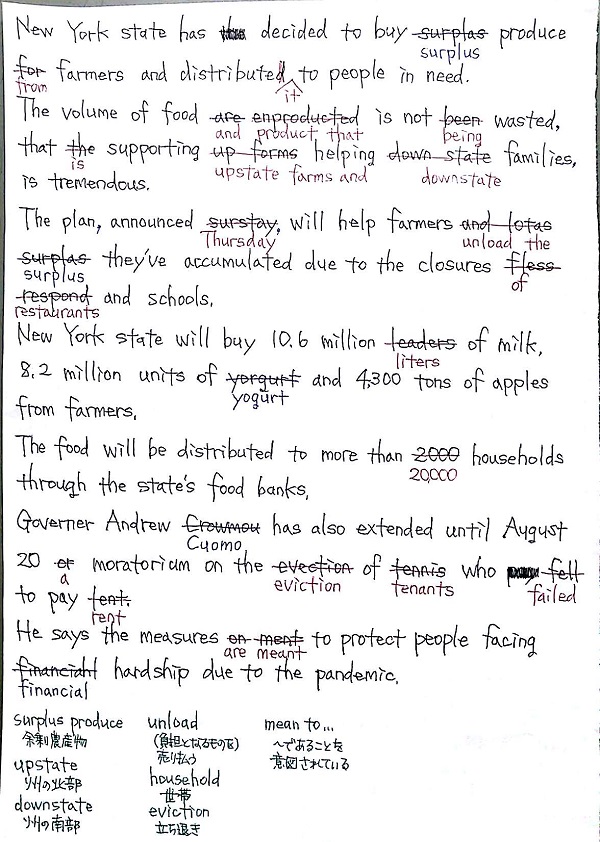 New York state has the decided to buy surplas produce
surplus
for farmers and distributed, to people in need.
from it
The volume of food are enproducted is not been wasted,
and product that being
that the supporting up forms helping down state families,
is upstate farms and downstate
is tremendous.
The plan, announced surstay, will help farmers and lotas
Thursday unload the
surplas they've accumulated due to the closures f less
surplus of
respond and schools.
restaurants
New York state will buy 10.6 million leaders of milk,
liters
8.2 million units of yorgurt and 4,300 tons of apples
yogurt
from farmers.
The food will be distributed to more than 2000 households
20,000
through the state's food banks.
Governer Andrew Crowmou has also extended until August
Cuomo
20 or moratorium on the evection of tennis who fell
a eviction tenants failed
to pay tent.
rent
He says the measures on ment to protect people facing
are meant
financiaht hardship due to the pandemic.
financial
surplus produce unload mean to...
余剰農産物 (負担となるものを) 〜であることを
upstate 売り払う 意図されている
州の北部 household
downstate 世帯
州の南部 eviction
立ち退き